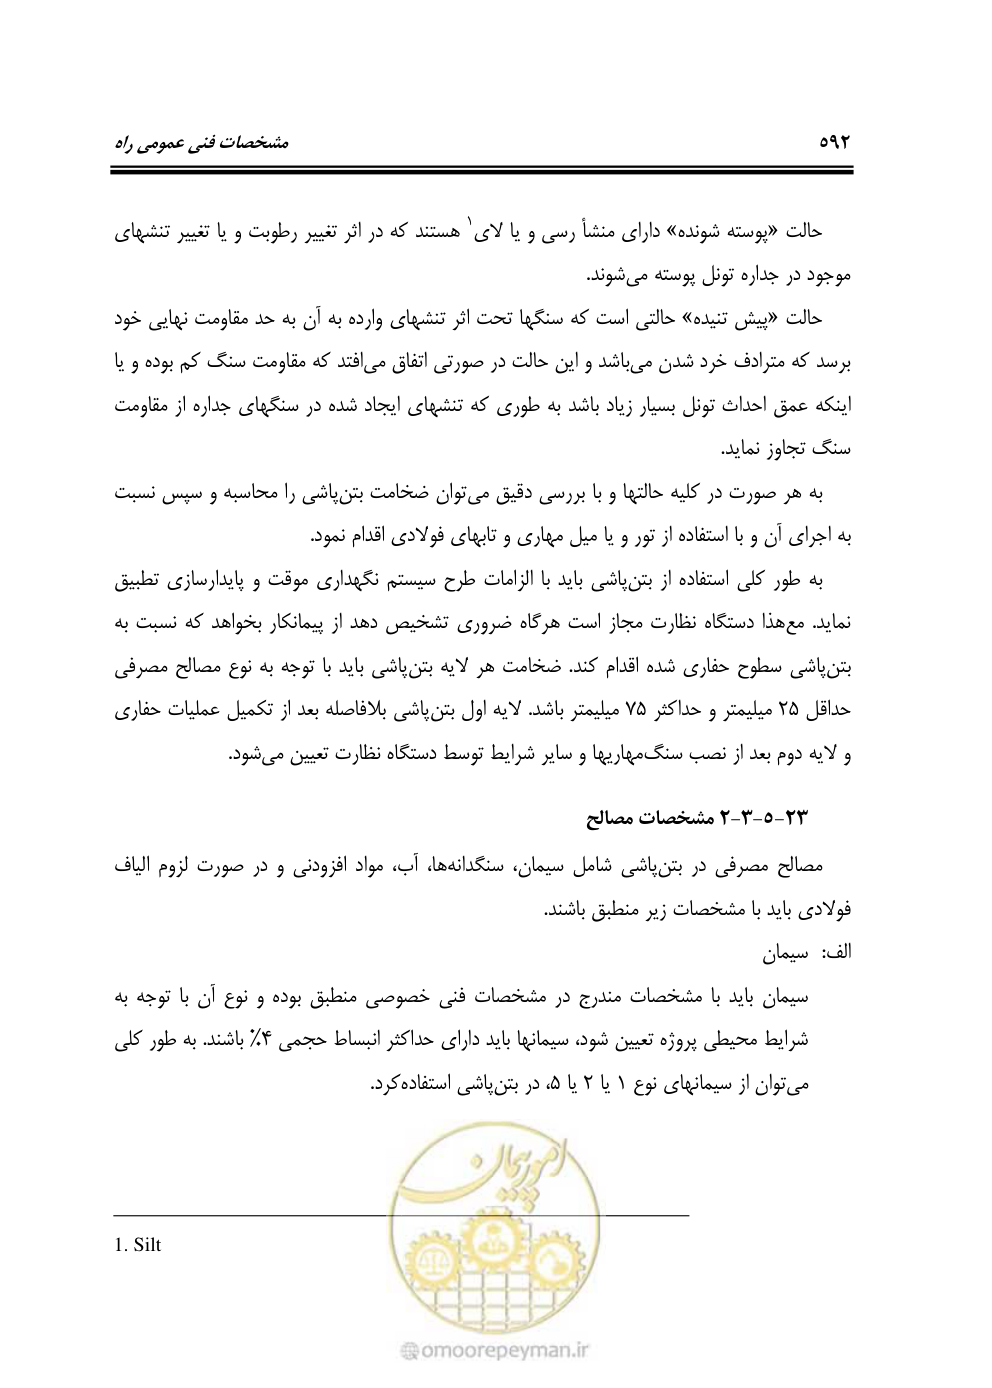 ۵۹۲ مشخصات فنی عمومی راه
حالت «پوسته شونده» دارای منشأ رسی و یا لای۱ هستند که در اثر تغییر رطوبت و یا تغییر تنشهای
موجود در جداره تونل پوسته می‌شوند.
حالت «پیش تنیده» حالتی است که سنگها تحت اثر تنشهای وارده به آن به حد مقاومت نهایی خود
برسد که مترادف خرد شدن می‌باشد و این حالت در صورتی اتفاق می‌افتد که مقاومت سنگ کم بوده و یا
اینکه عمق احداث تونل بسیار زیاد باشد به طوری که تنشهای ایجاد شده در سنگهای جداره از مقاومت
سنگ تجاوز نماید.
به هر صورت در کلیه حالتها و با بررسی دقیق می‌توان ضخامت بتن‌پاشی را محاسبه و سپس نسبت
به اجرای آن و با استفاده از تور و یا میل مهاری و تابهای فولادی اقدام نمود.
به طور کلی استفاده از بتن‌پاشی باید با الزامات طرح سیستم نگهداری موقت و پایدارسازی تطبیق
نماید. مع‌هذا دستگاه نظارت مجاز است هرگاه ضروری تشخیص دهد از پیمانکار بخواهد که نسبت به
بتن‌پاشی سطوح حفاری شده اقدام کند. ضخامت هر لایه بتن‌پاشی باید با توجه به نوع مصالح مصرفی
حداقل ۲۵ میلیمتر و حداکثر ۷۵ میلیمتر باشد. لایه اول بتن‌پاشی بلافاصله بعد از تکمیل عملیات حفاری
و لایه دوم بعد از نصب سنگ‌مهاریها و سایر شرایط توسط دستگاه نظارت تعیین می‌شود.
۲۳-۵-۳-۲ مشخصات مصالح
مصالح مصرفی در بتن‌پاشی شامل سیمان، سنگدانه‌ها، آب، مواد افزودنی و در صورت لزوم الیاف
فولادی باید با مشخصات زیر منطبق باشند.
الف: سیمان
سیمان باید با مشخصات مندرج در مشخصات فنی خصوصی منطبق بوده و نوع آن با توجه به
شرایط محیطی پروژه تعیین شود، سیمانها باید دارای حداکثر انبساط حجمی ۴٪ باشند. به طور کلی
می‌توان از سیمانهای نوع ۱ یا ۲ یا ۵، در بتن‌پاشی استفاده‌کرد.
امور پیمان
1. Silt
omoorepeyman.ir